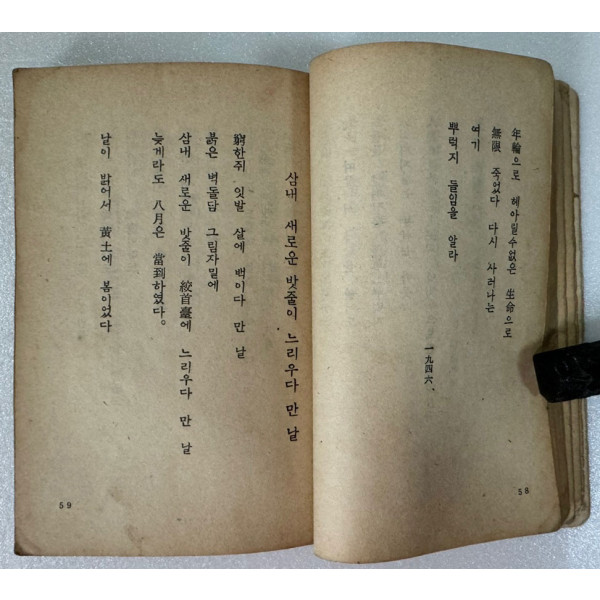 年輪으로 헤아릴수없은 生命으로
無限 죽었다 다시 사러나는
여기
뿌럭지 들임을 알라
一九四六、
58
삼내 새로운 밧줄이 느리우다 만 날
窮한쥐 잇발 살에 백이다 만 날
붉은 벽돌담 그림자밑에
삼내 새로운 밧줄이 絞首臺에 느리우다 만 날
늦게라도 八月은 當到하였다。
날이 밝어서 黃土에 봄이었다
59